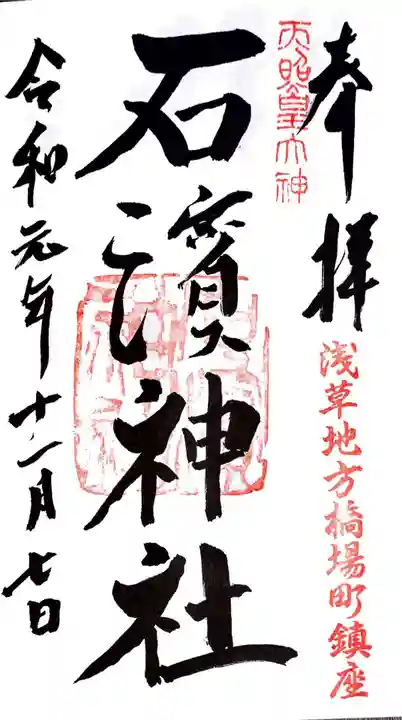 奉拝
天照皇大神
浅草地方橋場町鎮座
石濱神社
令和元年十二月七日